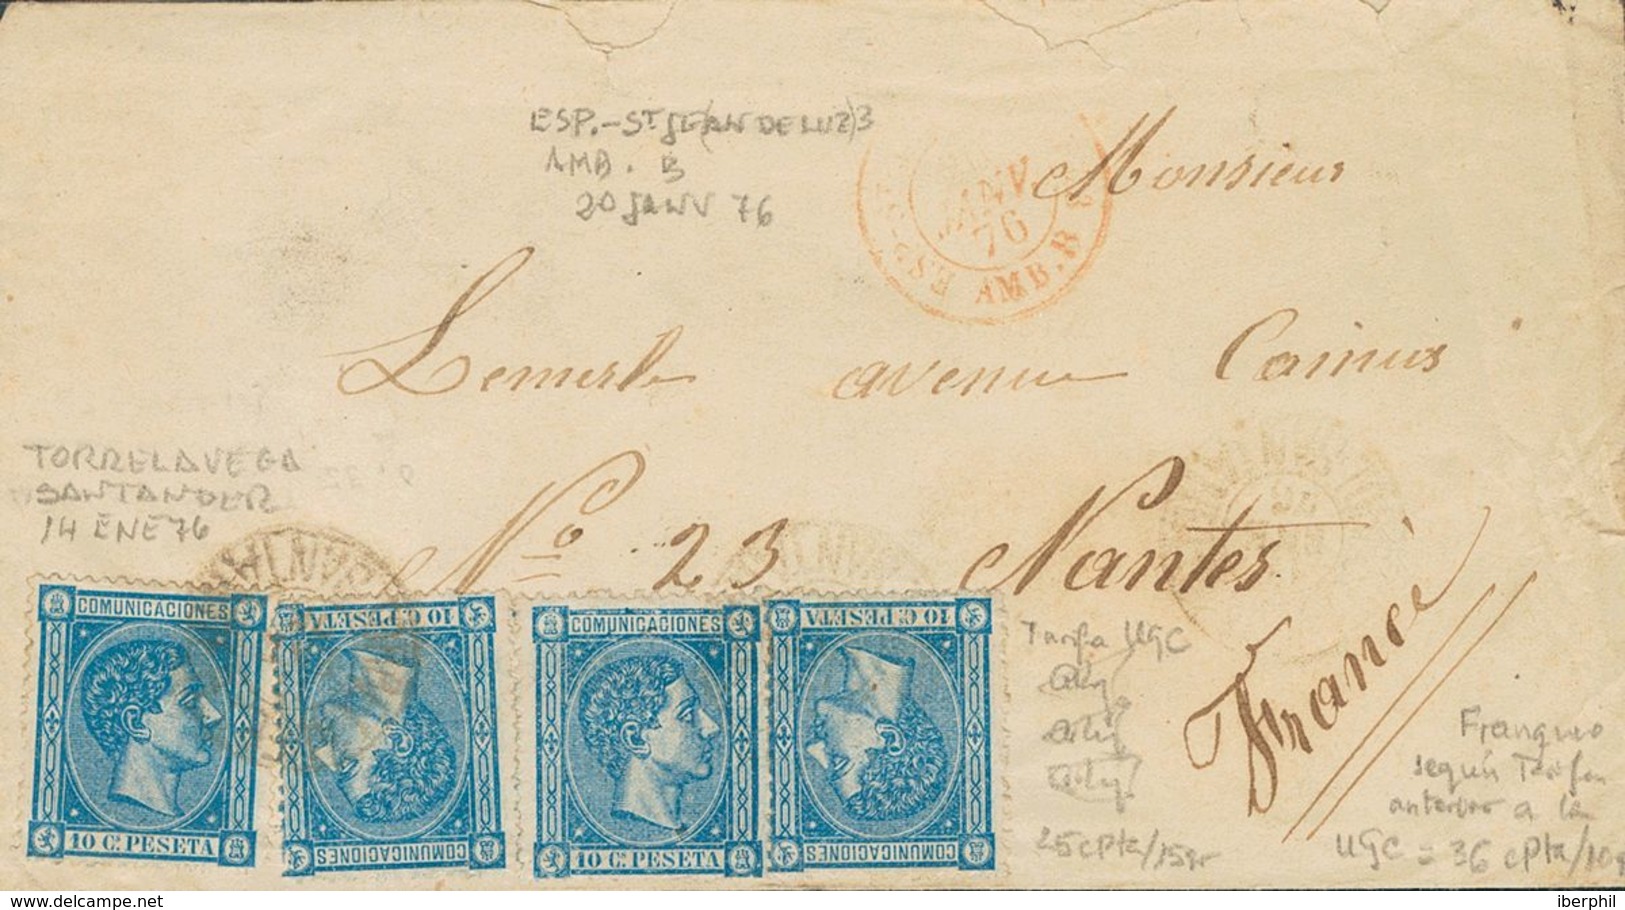 ESP.-ST JE(AN DE LUZ)3
AMB. B
20 JANV 76
JANV.
76
ESP.-ST
AMB.B
Monsieur
Lemerle avenue Camus
TORRELAVEGA
SANTANDER
14 ENE 76
No 23 Nantes
France
COMUNICACIONES
10 Cs. PESETA
10 C. PESETA
COMUNICACIONES
COMUNICACIONES
10 Cs. PESETA
10 C. PESETA
COMUNICACIONES
Tarifa UGC
25 cPta/15gr
Franqueo
según Tarifa
anterior a la
UGC = 36 cPta/10g
delcampe.net
iberphil